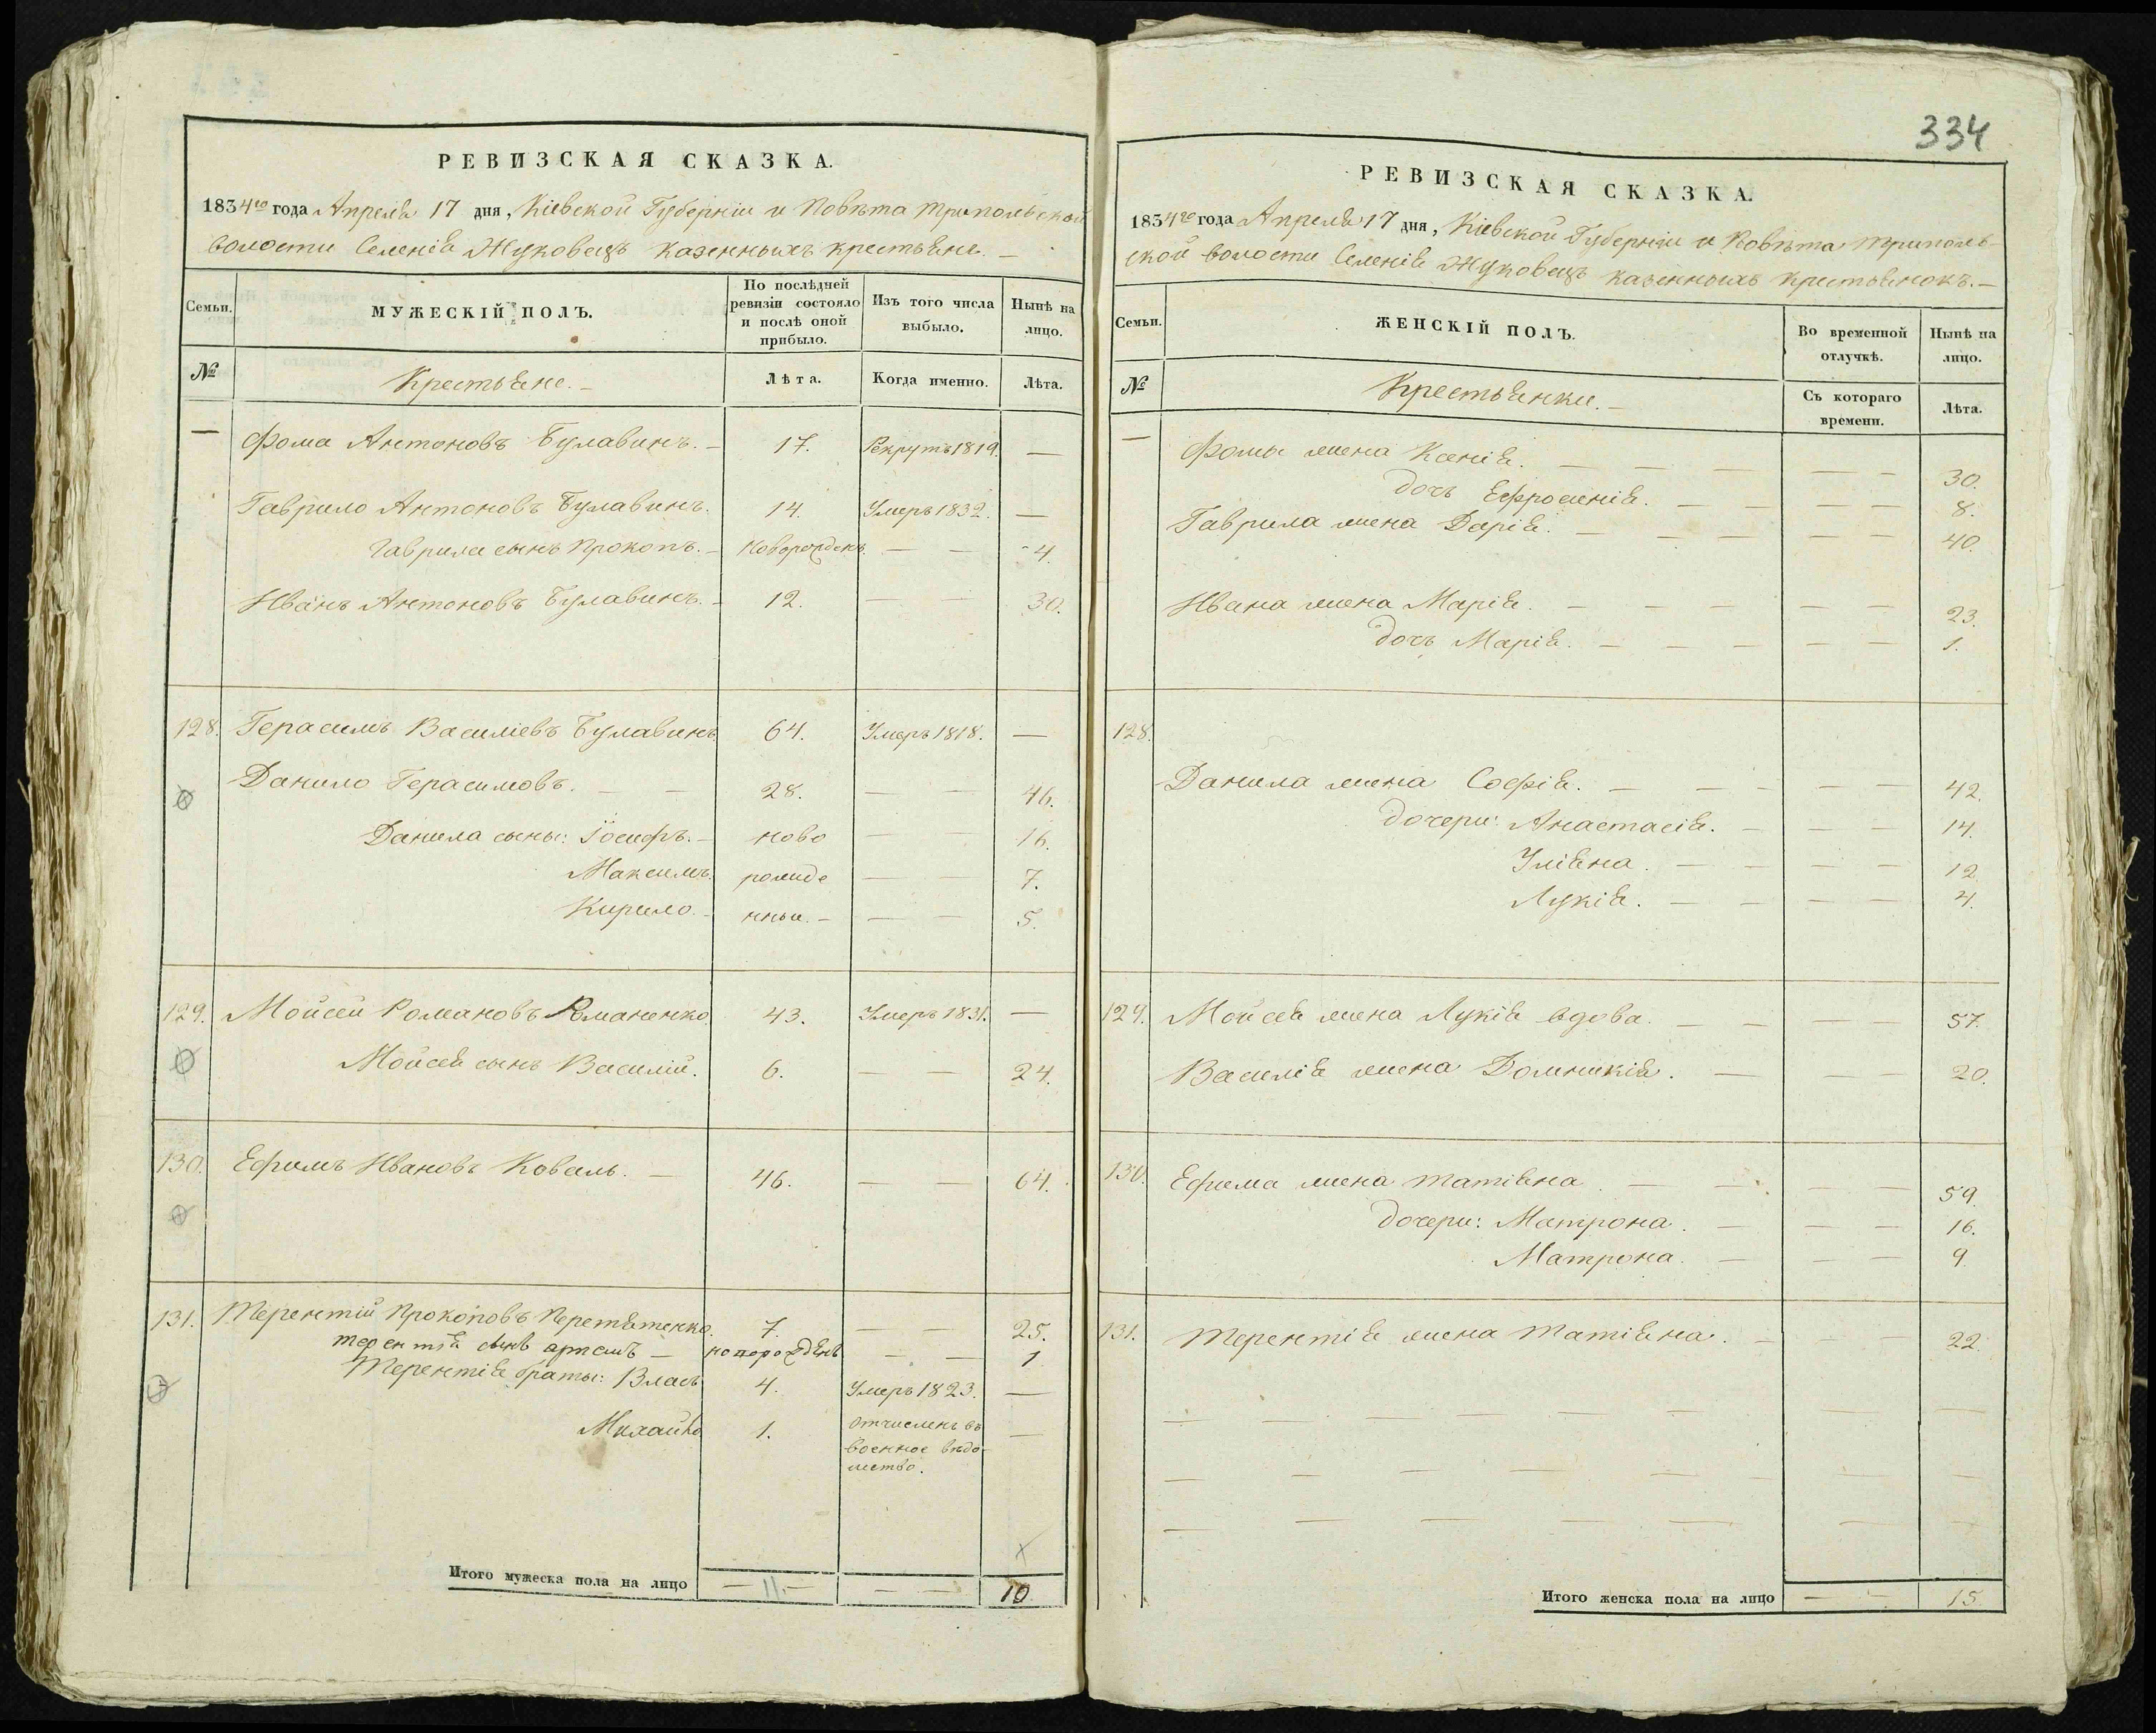 РЕВИЗСКАЯ СКАЗКА.
1834го года Апреля 17 дня, Кіевской Губерніи и Повѣта Трипольской
волости Селенія Жуковецъ казенныхъ крестьянъ. —
Семьи.
МУЖЕСКІЙ ПОЛЪ.
По послѣдней ревизіи состояло и послѣ оной прибыло.
Изъ того числа выбыло.
Нынѣ на лицо.
№
Крестьяне. —
Лѣта.
Когда именно.
Лѣта.
— Фома Антоновъ Булавинъ. — 17. Рекрутъ 1819. —
Гаврило Антоновъ Булавинъ. 14. Умеръ 1832. —
Гаврила сынъ Прокопъ. — Новорожденъ. — — 4.
Иванъ Антоновъ Булавинъ. — 12. — — 30.
128. Герасимъ Василіевъ Булавинъ 64. Умеръ 1818. —
Данило Герасимовъ. — — 28. — — 46.
Данила сыны: Іосифъ. — ново — — 16.
Максимъ. рожде — — 7.
Кирило. — нны. — — — 5.
129. Мойсей Романовъ Романенко 43. Умеръ 1831. —
Мойсея сынъ Василій. 6. — — 24.
130. Ефимъ Ивановъ Коваль. — 46. — — 64.
131. Терентій Прокоповъ Перетятенко. 7. — — 25.
терентія сынъ артемъ — новорожденъ — — 1
Терентія браты: Власъ 4. Умеръ 1823. —
Михайло 1. отчисленъ въ —
военное вѣдо-
мство.
Итого мужеска пола на лицо — 11. — — — 10
334
РЕВИЗСКАЯ СКАЗКА.
1834го года Апреля 17 дня, Кіевской Губерніи и Повѣта Триполь-
ской волости Селенія Жуковецъ казенныхъ крестьянокъ. —
Семьи.
ЖЕНСКІЙ ПОЛЪ.
Во временной отлучкѣ.
Нынѣ на лицо.
№
Крестьянки. —
Съ котораго времени.
Лѣта.
— Фомы жена Ксенія. — — — — 30.
дочь Ефросинія. — — — — 8.
Гаврила жена Дарія. — — — — 40.
Ивана жена Марія. — — — — 23.
дочь Марія. — — — — — 1.
128.
Данила жена Софія. — — — — 42.
дочери: Анастасія. — — — 14.
Уліяна. — — — — 12.
Лукія. — — — — 4.
129. Мойсея жена Лукія вдова. — — — — 57.
Василія жена Домникія. — — — 20.
130. Ефима жена Татіяна. — — — — 59.
дочери: Матрона. — — — 16.
Матрона. — — — 9
131. Терентія жена Татіяна. — — — 22.
Итого женска пола на лицо — — 15